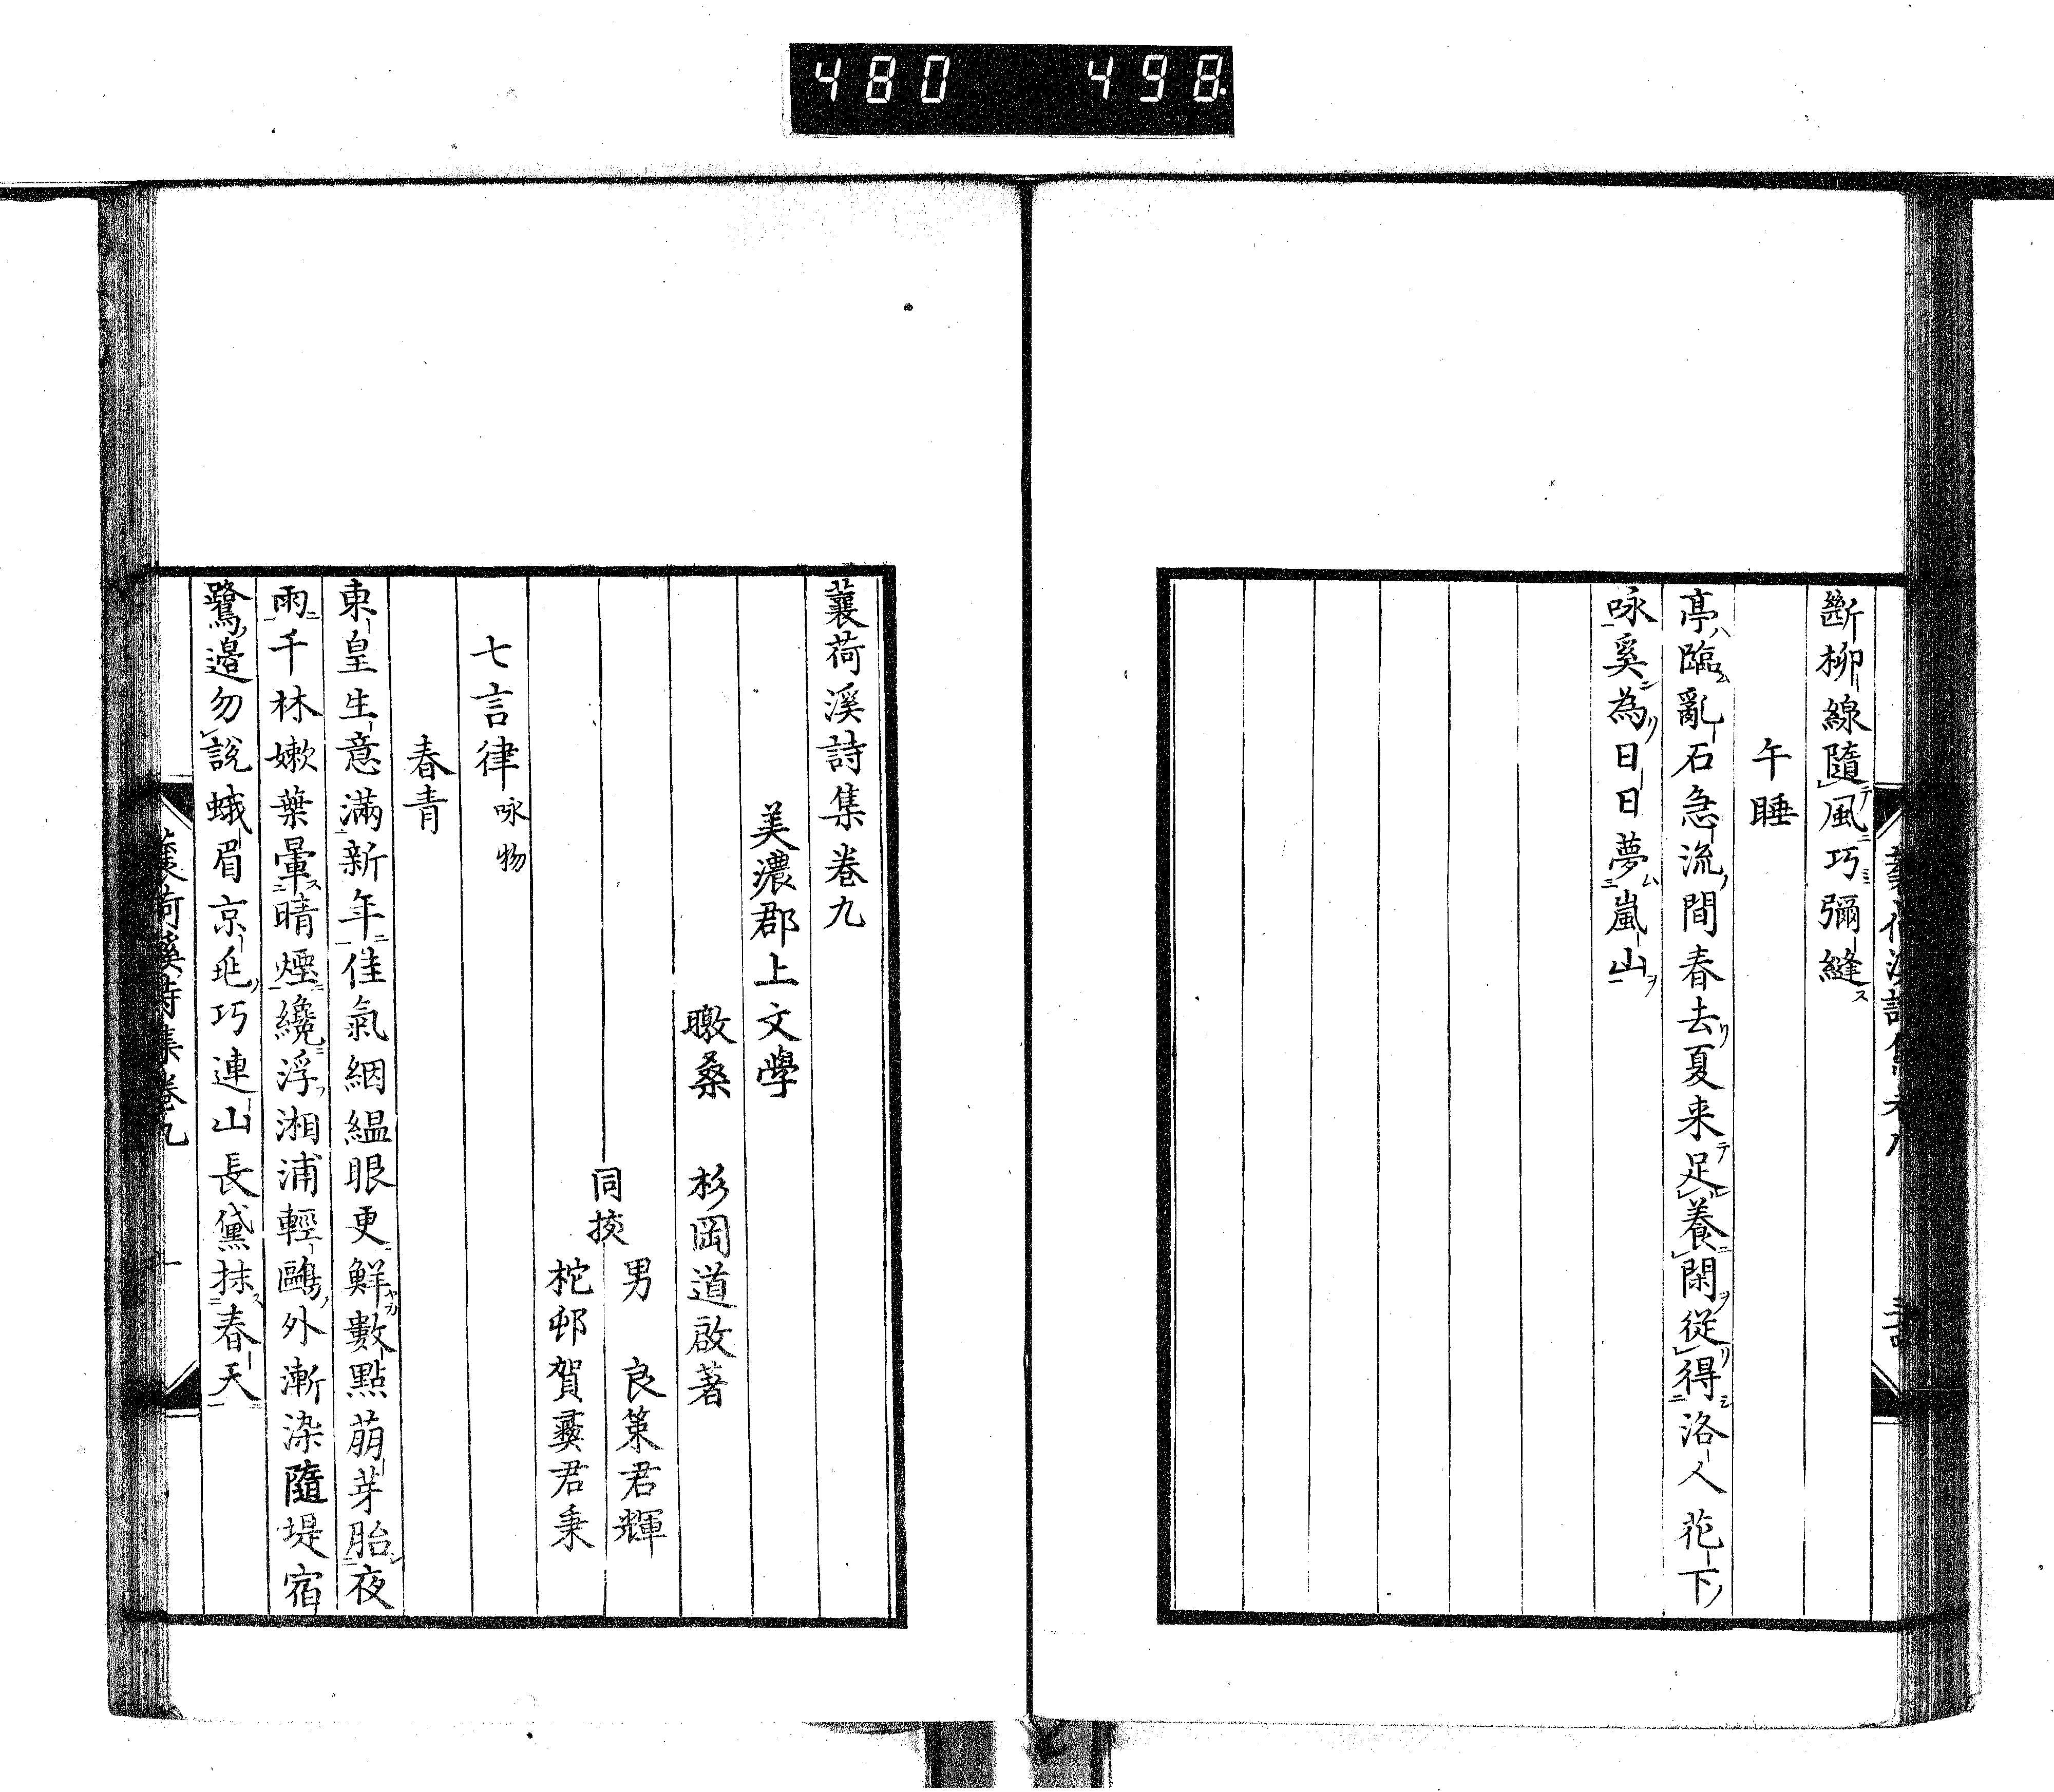 480 498
斷柳線隨風巧彌縫
午睡
亭臨亂石急流間春去夏来足養閑從得洛人花下
咏奚為日日夢嵐山
蘘荷溪詩集卷九
美濃郡上文學
暾桑 杉岡道啟著
同挍
男 良策君輝
柁邨賀彛君秉
七言律 咏物
春青
東皇生意滿新年佳氣絪縕眼更鮮數點萠芽胎夜
雨千林嫰葉暈晴煙纔浮湘浦輕鷗外漸染隨堤宿
鷺邊勿說蛾眉京兆巧連山長黛抹春天
蘘荷溪詩集卷九 一